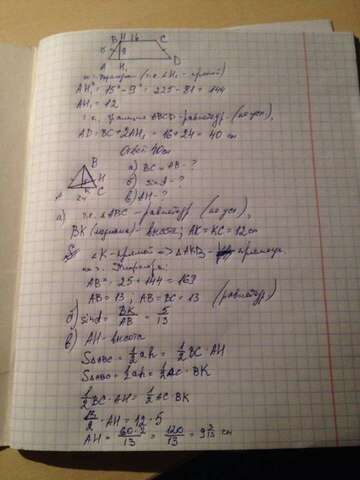 B H 16 C
15 9
A H₁ D
по т. Пифагора (т.к. ∠H₁ - прямой)
AH₁² = 15² - 9² = 225 - 81 = 144
AH₁ = 12
т.к. трапеция ABCD - равнобедр. (по усл),
AD = BC + 2AH₁ = 16 + 24 = 40 см
Ответ 40 см
B
H
A K C
24
а) BC = AB - ?
б) sin α - ?
в) AH - ?
а) т.к. △ABC - равнобедр (по усл),
BK (медиана) - высота; AK = KC = 12 см
∠K - прямой => △AKB - прямоуг.
по т. Пифагора:
AB² = 25 + 144 = 169
AB = 13; AB = BC = 13 (равнобедр)
б) sin α = BK/AB = 5/13
в) AH - высота
S△ABC = 1/2 ah = 1/2 BC · AH
S△ABC = 1/2 ah = 1/2 AC · BK
1/2 BC · AH = 1/2 AC · BK
13/2 · AH = 12 · 5
AH = 60·2/13 = 120/13 = 9 3/13 см